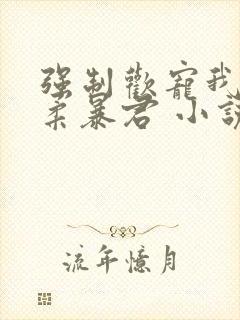 强制歡寵我
柔暴君 小說
流年憶月